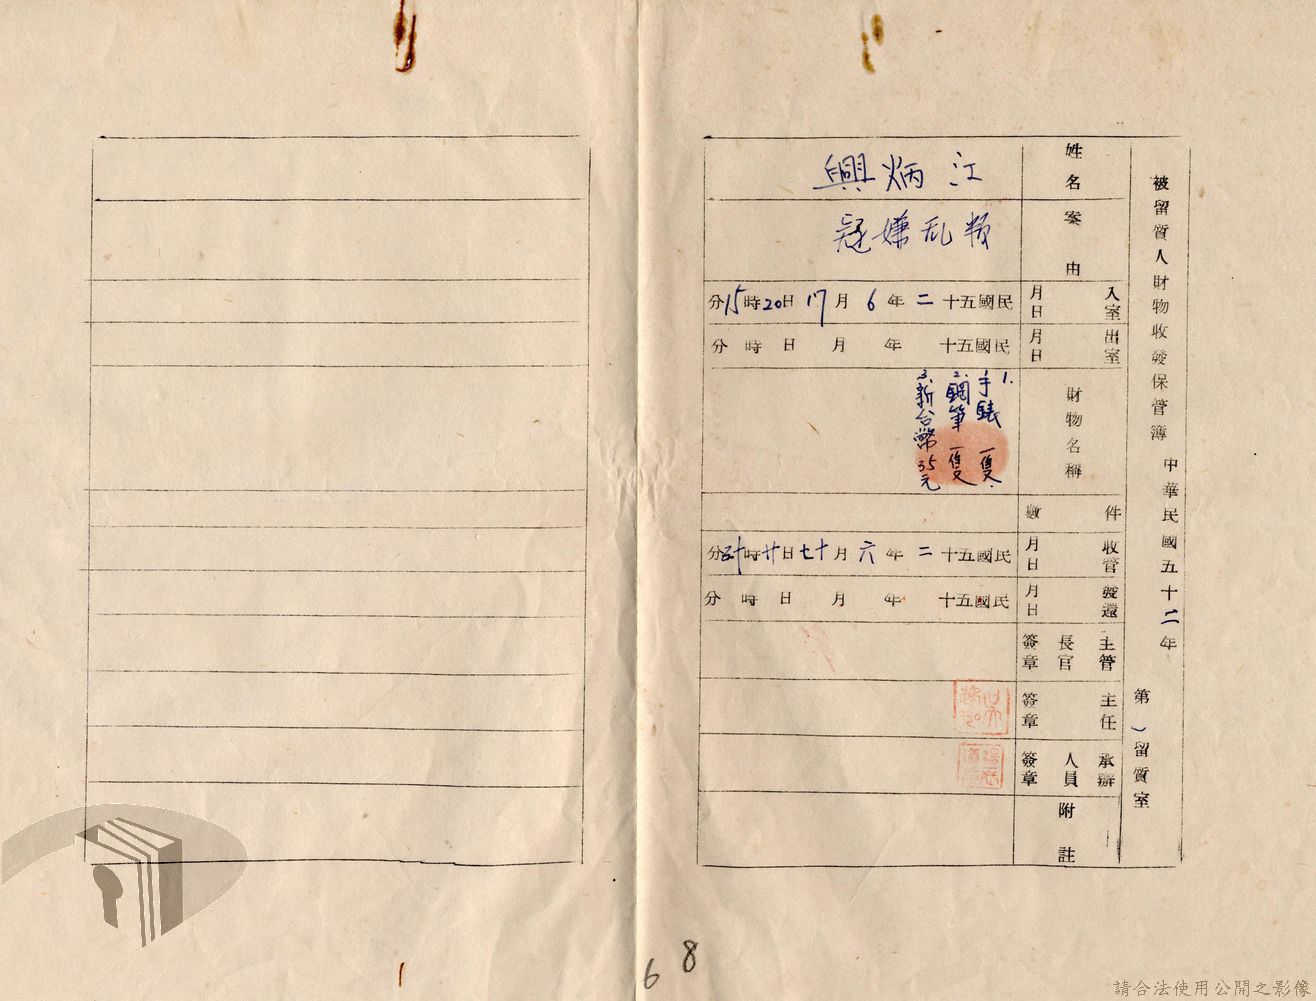 被留質人財物收發保管簿 中華民國五十二年
第 留質室
姓名 江炳興
案由 叛乱嫌疑
入室月日 民國五十二年6月17日20時15分
出室月日 民國五十 年 月 日 時 分
財物名稱
1. 手錶一隻.
2. 鋼筆一隻
3. 新台幣35元
件數
收管月日 民國五十二年六月十七日廿時 分
發還月日 民國五十 年 月 日 時 分
主管長官簽章
主任簽章
承辦人員簽章
附註
6 8
請合法使用公開之影像